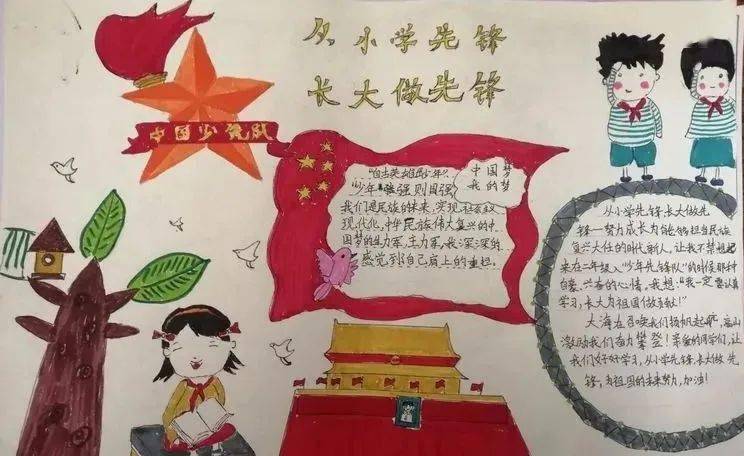 从小学先锋
长大做先锋
中国少先队
"自古英雄出少年"
"少年强则国强
我们是民族的未来,实现社会主义
现代化,中华民族伟大复兴的中
国梦的生力军,主力军,我深深的
感觉到自己肩上的重担。
中国梦
我的梦
从小学先锋,长大做先
锋——努力成长为能够担当民族
复兴大任的时代新人,让我不禁想起
来在二年级入"少年先锋队"的时候那种
自豪、兴奋的心情。我想:"我一定要认真
学习,长大为祖国做贡献!"
大海在召唤我们扬帆起航,高山
激励我们奋力攀登!亲爱的同学们,让
我们好好学习,从小学先锋,长大做先
锋,为祖国的未来努力,加油!